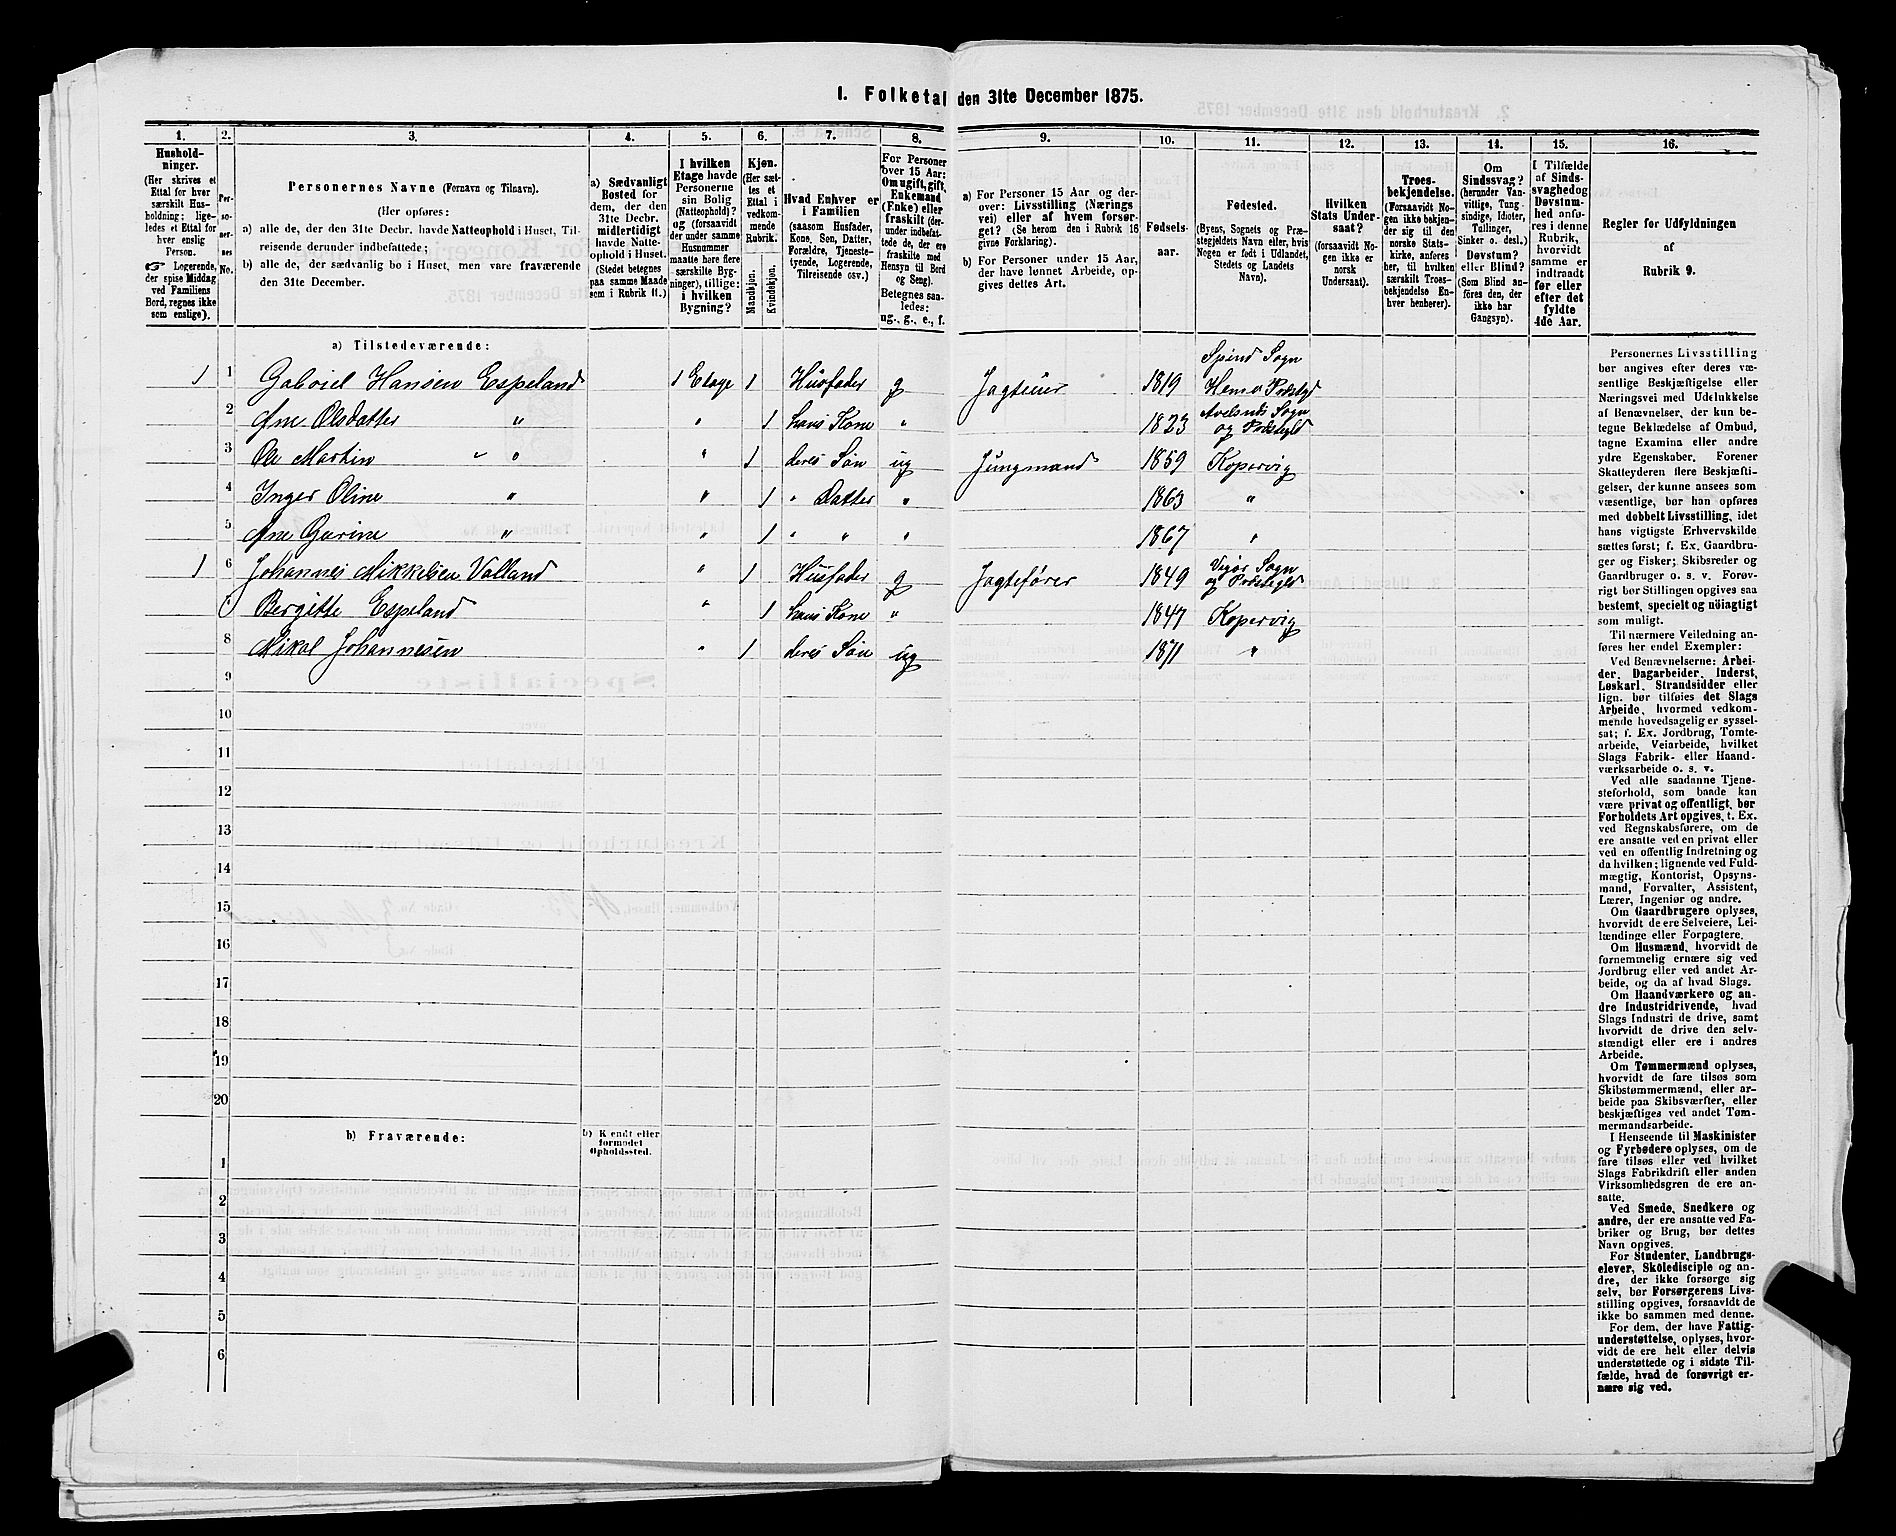 I. Folketal den 31te December 1875.
1. 2. 3. 4. 5. 6. 7. 8. 9. 10. 11. 12. 13. 14. 15. 16.
Husholdninger.
(Her skrives et
Ettal for hver
særskilt Hus-
holdning; lige-
ledes et Ettal for
hver enslig
Person.
Logerende,
der spise Middag
ved Familiens
Bord, regnes ikke
som enslige).
Per-
so-
ner-
nes
No.
Personernes Navne (Fornavn og Tilnavn).
(Her opføres:
a) alle de, der den 31te Decbr. havde Natteophold i Huset, Til-
reisende derunder indbefattede;
b) alle de, der sædvanlig bo i Huset, men vare fraværende
den 31te December.
a) Sædvanligt
Bosted for
dem, der den
31te Decbr.
midlertidigt
havde Natte-
ophold i Huset.
(Stedet betegnes
paa samme Maade
som i Rubrik 11.)
I hvilken
Etage havde
Personerne
sin Bolig
(Natteophold)?
og (forsaavidt
der under samme
Husnummer
maatte høre flere
særskilte Byg-
ninger), tillige:
i hvilken
Bygning?
Kjøn.
(Her sæt-
tes et
Ettal i
vedkom-
mende
Rubrik.
Mandkjøn.
Kvindekjøn.
Hvad Enhver er
i Familien
(saasom Husfader,
Kone, Søn, Datter,
Forældre, Tjeneste-
tyende, Logerende,
Tilreisende osv.)
For Personer
over 15 Aar:
Om ugift, gift,
Enkemand
(Enke) eller
fraskilt (der-
under indbefat-
tede de, der ere
fraskilte med
Hensyn til Bord
og Seng).
Betegnes saa-
ledes:
ug., g., e., f.
a) For Personer 15 Aar og der-
over: Livsstilling (Nærings
vei) eller af hvem forsør-
get? (Se herom den i Rubrik 16
givne Forklaring).
b) For Personer under 15 Aar,
der have lønnet Arbeide, op-
gives dettes Art.
Fødsels-
aar.
Fødested.
(Byens, Sognets og Præ-
stegjeldets Navn eller, hvis
Nogen er født i Udlandet,
Stedets og Landets
Navn).
Hvilken
Stats Under-
saat?
(forsaavidt No-
gen ikke er
norsk
Undersaat).
Troes-
bekjendelse.
(Forsaavidt No-
gen ikke bekjen-
der sig til den
norske Stats-
kirke, anføres
her, til hvilken
særskilt Troes-
bekjendelse En-
hver henhører).
Om
Sindssvag?
(herunder Van-
vittige, Tung-
sindige, Idioter,
Tullinger,
Sinker o. desl.)
Døvstum?
eller Blind?
(Som Blind an-
føres den, der
ikke har
Gangsyn).
I Tilfælde
af Sinds-
svaghed og
Døvstum-
hed anfø-
res i denne
Rubrik,
hvorvidt
samme er
indtraadt
før eller
efter det
fyldte
4de Aar.
Regler for Udfyldningen
af
Rubrik 9.
a) Tilstedeværende:
1 1 Gabriel Hansen Espeland 1 Etage 1 Husfader g Jagteier 1819 Spind Sogn Herre Præstgd
2 Ane Olsdatter " " 1 hans Kone " 1823 Sogn og Præstegld
3 Ole Martin " " " 1 deres Søn ug Jungmand 1859 Kopervig
4 Inger Oline " " 1 " Datter " 1863 "
5 Ane Gurine " " 1 " " " 1867 "
1 6 Johannes Mikkelsen Valland " 1 Husfader g Jagtefører 1849 Sogn og Præstegld
Bergitte Espeland " 1 hans Kone " 1847 Kopervig
8 Mikal Johannesen " 1 deres Søn ug 1871 "
9
10
11
12
13
14
15
16
17
18
19
20
b) Fraværende:
b) Kjendt eller
formodet
Opholdssted.
1
2
3
4
5
6
Personernes Livsstilling
bør angives efter deres væ-
sentlige Beskjæftigelse eller
Næringsvei med Udelukkelse
af Benævnelser, der kun be-
tegne Beklædelse af Ombud,
tagne Examina eller andre
ydre Egenskaber. Forener
Skatteyderen flere Beskjæfti-
gelser, der kunne ansees som
væsentlige, bør han opføres
med dobbelt Livsstilling, idet
hans vigtigste Erhvervskilde
sættes først; f. Ex. Gaardbru-
ger og Fisker; Skibsreder og
Gaardbruger o. s. v. Forøv-
rigt bør Stillingen opgives saa
bestemt, specielt og nöiagtigt
som muligt.
Til nærmere Veiledning an-
føres her endel Exempler:
Ved Benævnelserne: Arbei-
der, Dagarbeider, Inderst,
Løskarl, Strandsidder eller
lign. bør tilføies det Slags
Arbeide, hvormed vedkom-
mende hovedsagelig er syssel-
sat; f. Ex. Jordbrug, Tomte-
arbeide, Veiarbeide, hvilket
Slags Fabrik- eller Haand-
værksarbeide o. s. v.
Ved alle saadanne Tjene-
steforhold, som baade kan
være privat og offentligt, bør
Forholdets Art opgives, t. Ex.
ved Regnskabsførere, om de
ere ansatte ved en privat eller
ved en offentlig Indretning og
da hvilken; lignende ved Fuld-
mægtig, Kontorist, Opsyns-
mand, Forvalter, Assistent,
Lærer, Ingeniør og andre.
Om Gaardbrugere oplyses,
hvorvidt de ere Selveiere, Lei-
lændinge eller Forpagtere.
Om Husmænd, hvorvidt de
fornemmelig ernære sig ved
Jordbrug eller ved andet Ar-
beide, og da af hvad Slags.
Om Haandværkere og an-
dre Industridrivende, hvad
Slags Industri de drive, samt
hvorvidt de drive den selv-
stændigt eller ere i andres
Arbeide.
Om Tømmermænd oplyses,
hvorvidt de fare tilsøs som
Skibstømmermænd, eller ar-
beide paa Skibsværfter, eller
beskjæftiges ved andet Tøm-
mermandsarbeide.
I Henseende til Maskinister
og Fyrbødere oplyses, om de
fare tilsøs eller ved hvilket
Slags Fabrikdrift eller anden
Virksomhedsgren de ere an-
satte.
Ved Smede, Snedkere og
andre, der ere ansatte ved Fa-
briker og Brug, bør dettes
Navn opgives.
For Studenter, Landbrugs-
elever, Skoledisciple og an-
dre, der ikke forsørge sig
selv, bør Forsørgerens Livs-
stilling opgives, forsaavidt de
ikke bo sammen med denne.
For dem, der have Fattig-
understøttelse, oplyses, hvor-
vidt de ere helt eller delvis
understøttede og i sidste Til-
fælde, hvad de forøvrigt er-
nære sig ved.